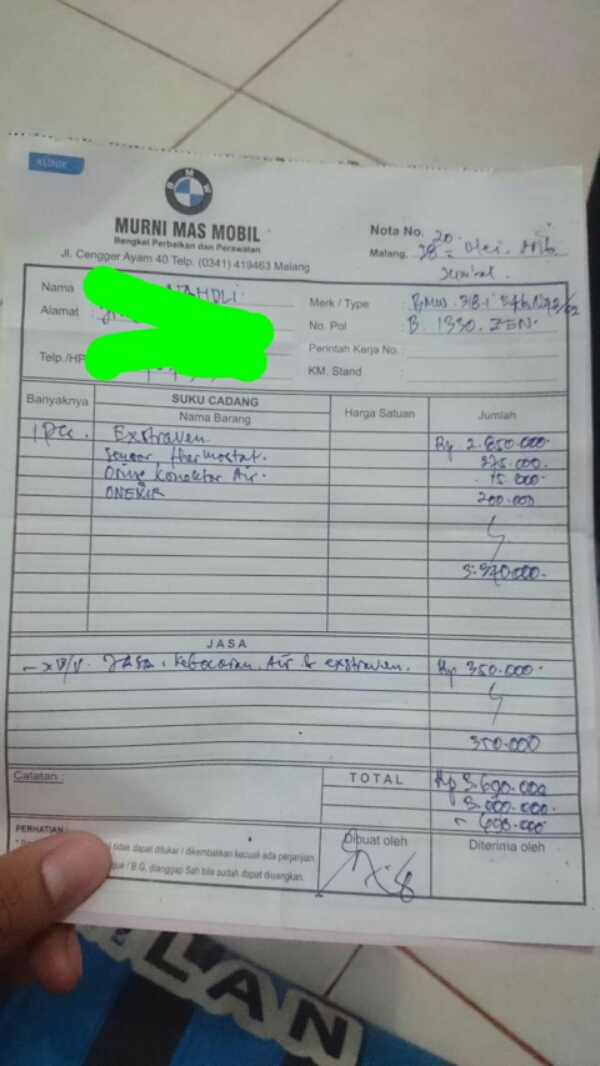 KLINIK
BMW
MURNI MAS MOBIL
Bengkel Perbaikan dan Perawatan
Jl. Cengger Ayam 40 Telp. (0341) 419463 Malang
Nota No. 20
Malang, 28 - Mei.
Nama
Alamat :
Telp./HP
Merk / Type : BMW. 318.i E46 N42/
No. Pol : B. 1330. ZEN.
Perintah Kerja No. :
KM. Stand :
Banyaknya
SUKU CADANG
Nama Barang
Harga Satuan
Jumlah
1 pcs. Exstraven Rp. 2.850.000.
Sensor thermostat. 275.000.
Oring konektor Air. 15.000
200.000
3.340.000.
JASA
JASA. kebocoran. Air & exstraven. Rp 350.000.
350.000
Catatan :
TOTAL Rp 3.690.000
3.000.000.
- 690.000
PERHATIAN :
tidak dapat ditukar / dikembalikan kecuali ada perjanjian.
/ B.G. dianggap Sah bila sudah dapat diuangkan.
Dibuat oleh
Diterima oleh
LAN